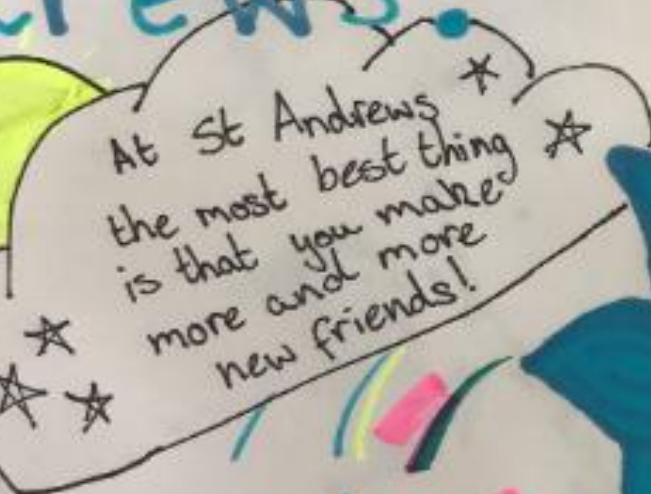 rews.
At St Andrews
the most best thing
is that you make
more and more
new friends!